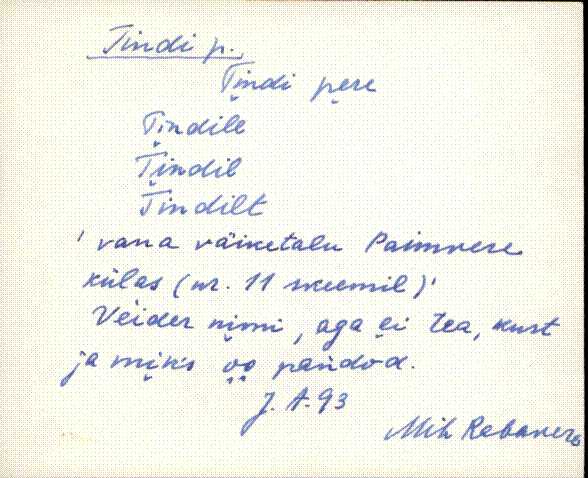 Tindi p.
Tindi pere
Tindile
Tindil
Tindilt
' vana väiketalu Paimvere
külas (nr. 11 skeemil)'
Veider nimi, aga ei tea, kust
ja miks oo pandod.
J. A. 93
Mih Rebavere